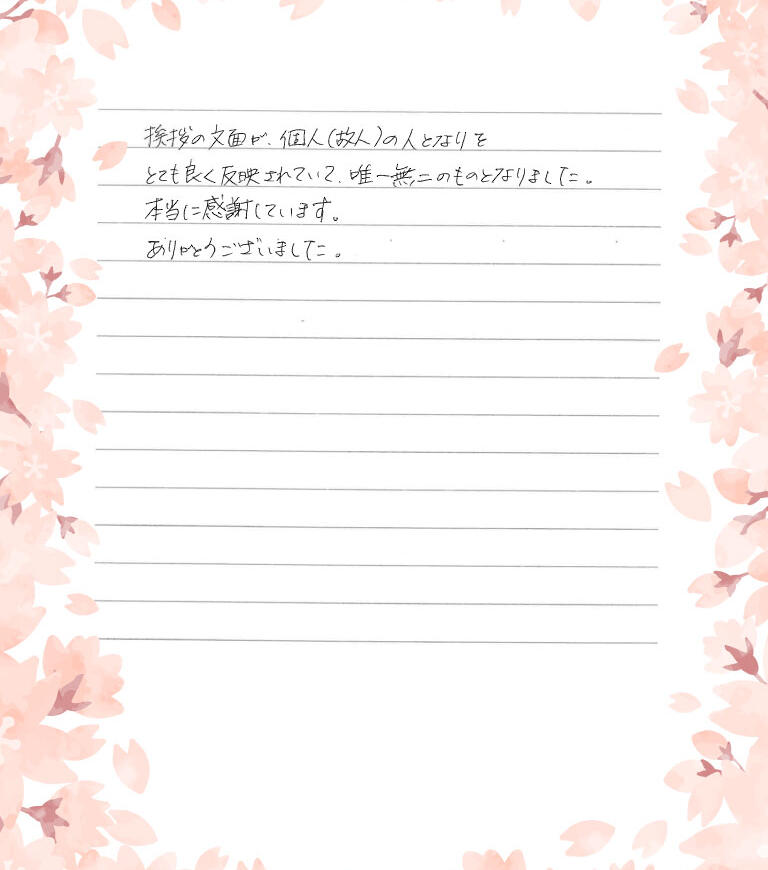 挨拶の文面が、個人(故人)の人となりを
とても良く反映されていて、唯一無二のものとなりました。
本当に感謝しています。
ありがとうございました。